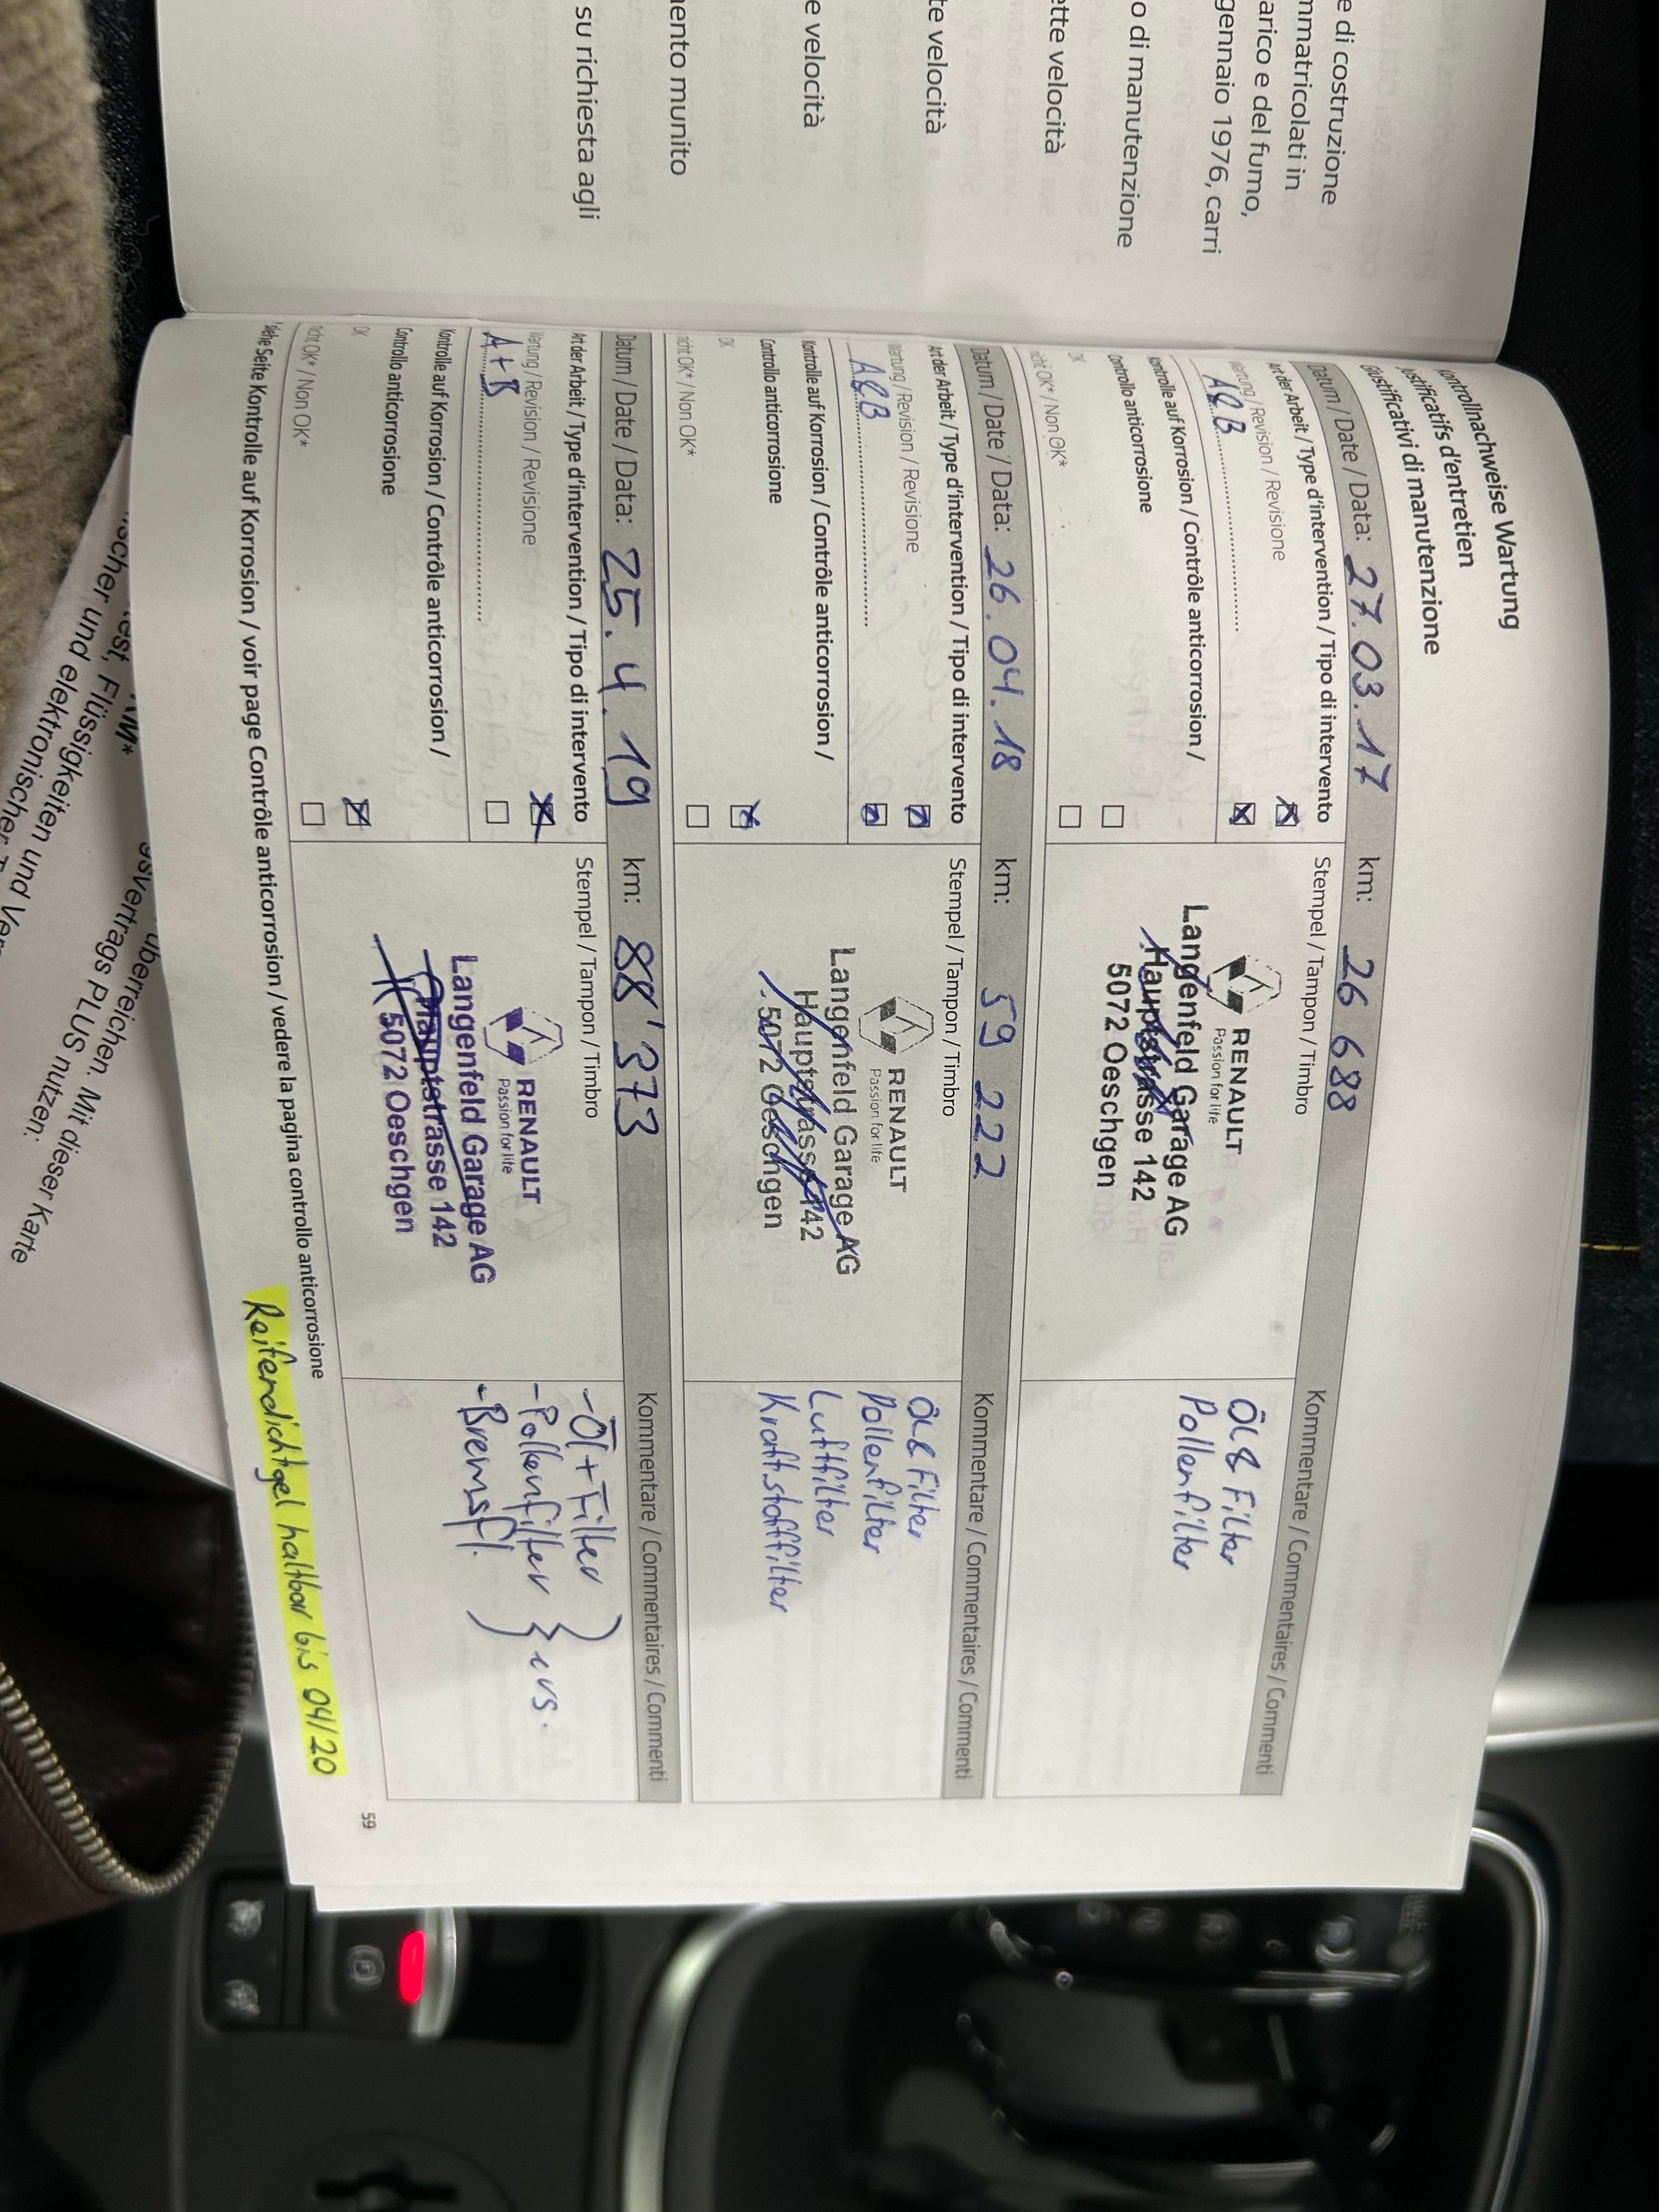 e di costruzione
mmatricolati in
arico e del fumo,
gennaio 1976, carri
o di manutenzione
ette velocità
te velocità
e velocità
ento munito
su richiesta agli
ontrollnachweise Wartung
ustificatifs d'entretien
Giustificativi di manutenzione
Datum / Date / Data: 27.03.17 km: 26 688
Art der Arbeit / Type d'intervention / Tipo di intervento
Wartung / Revision / Revisione
A&B
Kontrolle auf Korrosion / Contrôle anticorrosion /
Controllo anticorrosione
OK
nicht OK* / Non OK*
Stempel / Tampon / Timbro
RENAULT
Passion for life
Langenfeld Garage AG
Hauptstrasse 142
5072 Oeschgen
Kommentare / Commentaires / Commenti
Öl & Filter
Pollenfilter
Datum / Date / Data: 26.04.18 km: 59 222
Art der Arbeit / Type d'intervention / Tipo di intervento
Wartung / Revision / Revisione
A&B
Kontrolle auf Korrosion / Contrôle anticorrosion /
Controllo anticorrosione
OK
nicht OK* / Non OK*
Stempel / Tampon / Timbro
RENAULT
Passion for life
Langenfeld Garage AG
Hauptstrasse 142
5072 Oeschgen
Kommentare / Commentaires / Commenti
Öl & Filter
Pollenfilter
Luftfilter
Kraftstofffilter
Datum / Date / Data: 25.4.19 km: 88'373
Art der Arbeit / Type d'intervention / Tipo di intervento
Wartung / Revision / Revisione
A+B
Kontrolle auf Korrosion / Contrôle anticorrosion /
Controllo anticorrosione
OK
nicht OK* / Non OK*
Stempel / Tampon / Timbro
RENAULT
Passion for life
Langenfeld Garage AG
Hauptstrasse 142
5072 Oeschgen
Kommentare / Commentaires / Commenti
- Öl + Filter
- Pollenfilter
- Bremsfl.
ers.
*siehe Seite Kontrolle auf Korrosion / voir page Contrôle anticorrosion / vedere la pagina controllo anticorrosione
Reifendichtgel haltbar bis 04/20
59
überreichen. Mit dieser Karte
svertrags PLUS nutzen:
est, Flüssigkeiten und
scher und elektronischer